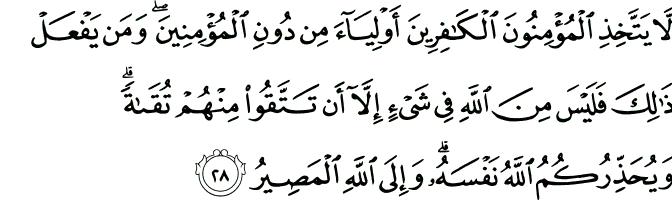 لَّا يَتَّخِذِ ٱلْمُؤْمِنُونَ ٱلْكَٰفِرِينَ أَوْلِيَآءَ مِن دُونِ ٱلْمُؤْمِنِينَ ۖ وَمَن يَفْعَلْ
ذَٰلِكَ فَلَيْسَ مِنَ ٱللَّهِ فِى شَىْءٍ إِلَّآ أَن تَتَّقُوا۟ مِنْهُمْ تُقَىٰةً ۗ
وَيُحَذِّرُكُمُ ٱللَّهُ نَفْسَهُۥ ۗ وَإِلَى ٱللَّهِ ٱلْمَصِيرُ ٢٨